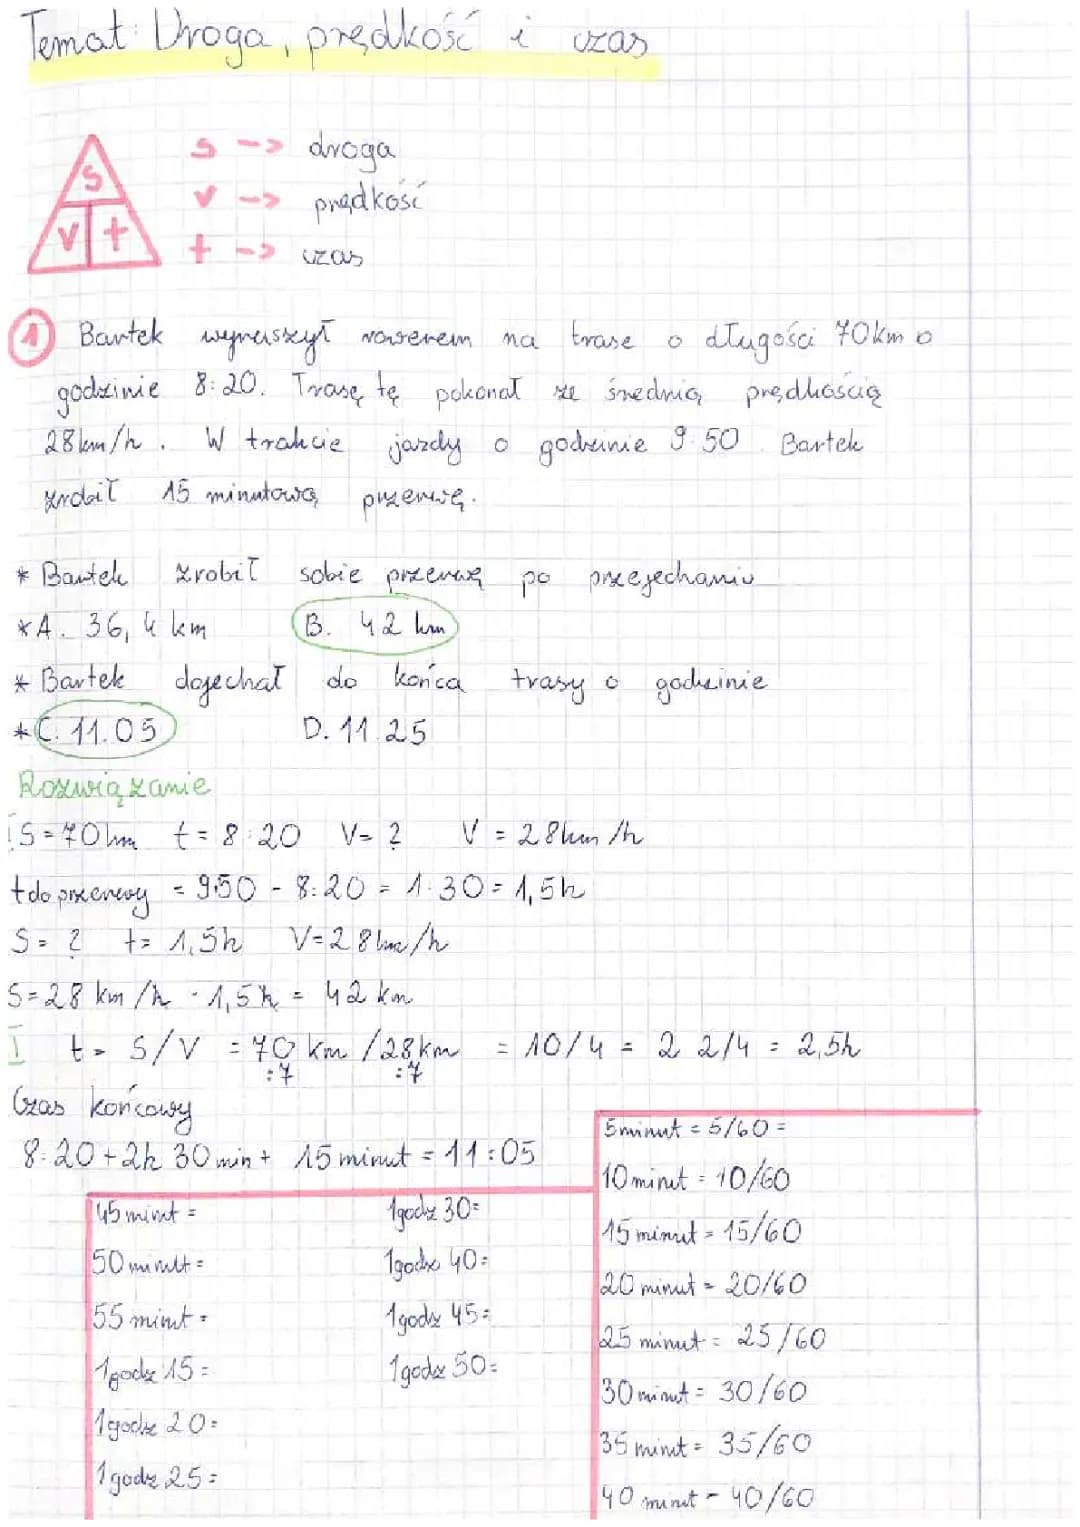 Temat: Droga, prędkość i czas
s --> droga
v --> prędkość
t --> czas
s
v t
1 Bartek wyruszył rowerem na trase o długości 70km o
godzinie 8:20. Trasę tę pokonał ze średnią prędkością
28km/h. W trakcie jazdy o godzinie 9.50 Bartek
zrobił 15 minutową przerwę.
* Bartek zrobił sobie przerwę po przejechaniu
* A. 36,4 km B. 42 km
* Bartek dojechał do końca trasy o godzinie
* C. 11.05 D. 11.25
Rozwiązanie
I S=70km t=8:20 V=? V=28km/h
t do przerwy = 9:50 - 8:20 = 1:30 = 1,5h
S=? t=1,5h V=28km/h
S=28 km/h · 1,5h = 42 km
I t= S/V = 70 km /28km = 10/4 = 2 2/4 = 2,5h
:7 :7
Czas końcowy
8:20+2h 30min + 15 minut = 11:05
45 minut =
50 minut =
55 minut =
1godz 15 =
1godz 20=
1godz 25=
1godz 30=
1godz 40=
1godz 45=
1godz 50=
5minut = 5/60 =
10minut = 10/60
15 minut = 15/60
20 minut = 20/60
25 minut = 25/60
30 minut = 30/60
35 minut = 35/60
40 minut - 40/60